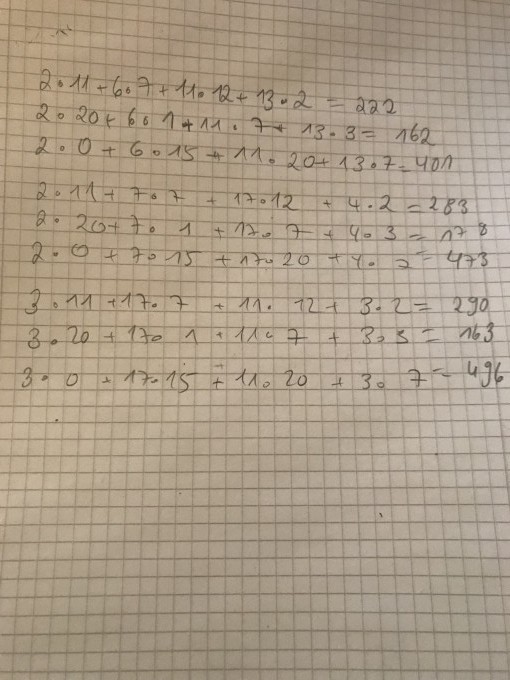 2•11+6•7+11•12+13•2 = 222
2•20+6•1+11•7+13•3= 162
2•0+6•15+11•20+13•7=401
2•11+7•7+17•12+4•2=283
2•20+7•1+17•7+4•3=178
2•0+7•15+17•20+4•7=473
3•11+17•7+11•12+3•2=290
3•20+17•1+11•7+3•3=163
3•0+17•15+11•20+3•7=496